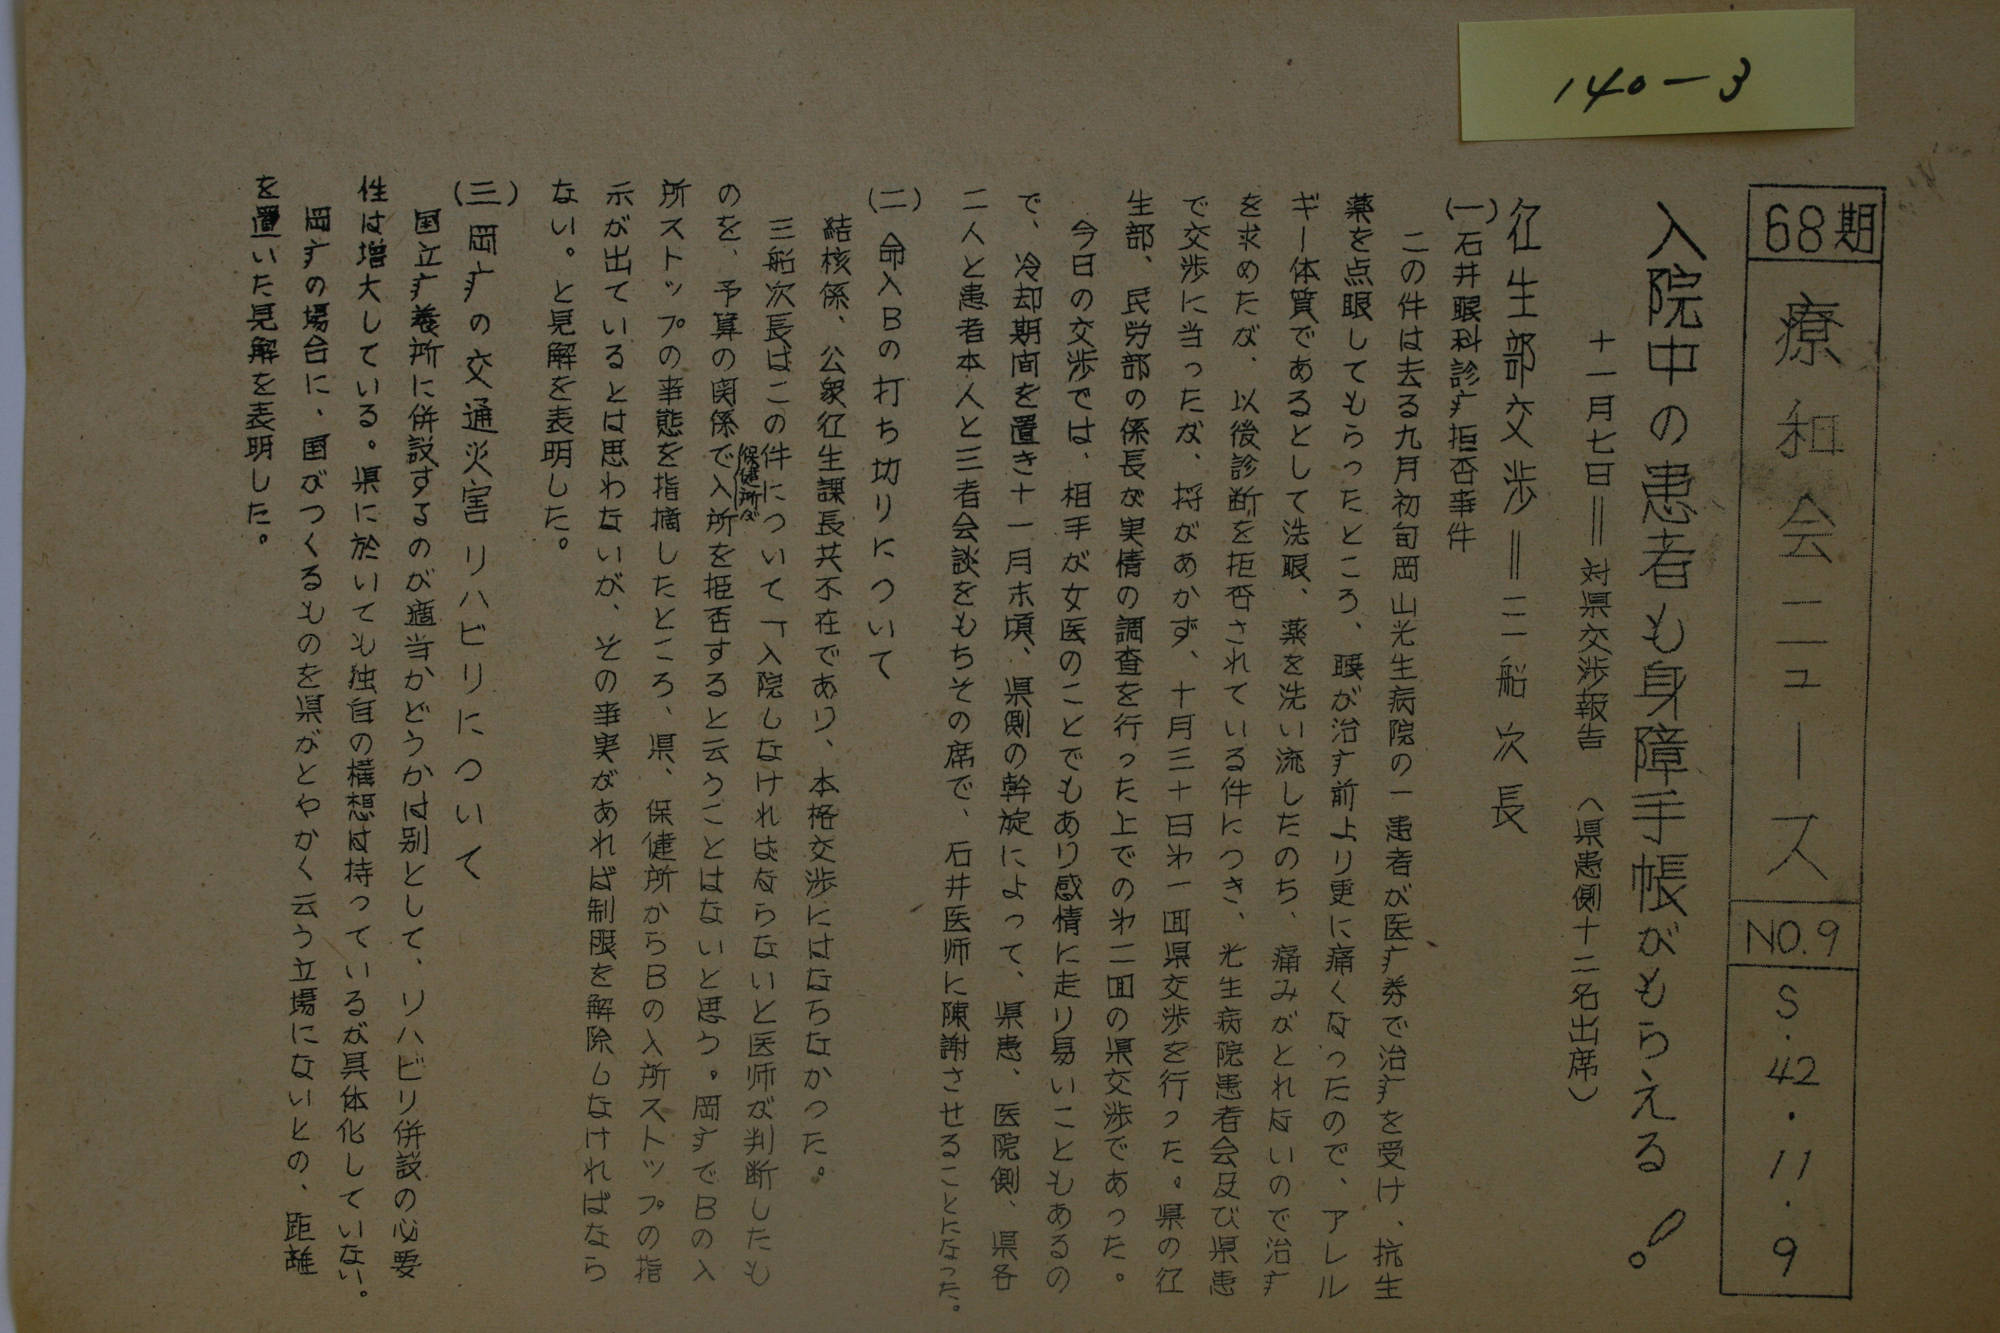 140-3
68期
療和会ニュース
NO.9
S.42.11.9
入院中の患者も身障手帳がもらえる!
十一月七日=対県交渉報告 (県患側十二名出席)
衛生部交渉=三船次長
(一)石井眼科診疗拒否事件
この件は去る九月初旬岡山光生病院の一患者が医疗券で治疗を受け、抗生
薬を点眼してもらったところ、眼が治疗前より更に痛くなったので、アレル
ギー体質であるとして洗眼、薬を洗い流したのち、痛みがとれないので治疗
を求めたが、以後診断を拒否されている件につき、光生病院患者会及び県患
で交渉に当ったが、埒があかず、十月三十日㐧一回県交渉を行った。県の衛
生部、民労部の係長が実情の調査を行った上での㐧二回の県交渉であった。
今日の交渉では、相手が女医のことでもあり感情に走り易いこともあるの
で、冷却期間を置き十一月末頃、県側の幹旋によって、県患、医院側、県各
二人と患者本人と三者会談をもちその席で、石井医師に陳謝させることになった。
(二)命入Bの打ち切りについて
結核係、公衆衛生課長共不在であり、本格交渉にはならなかった。
三船次長はこの件について「入院しなければならないと医師が判断したも
のを、予算の関係で保健所が入所を拒否すると云うことはないと思う。岡疗でBの入
所ストップの事態を指摘したところ、県、保健所からBの入所ストップの指
示が出ているとは思わないが、その事実があれば制限を解除しなければなら
ない。と見解を表明した。
(三)岡疗の交通災害リハビリについて
国立疗養所に併設するのが適当かどうかは別として、リハビリ併設の必要
性は増大している。県に於いても独自の構想は持っているが具体化していない。
岡疗の場合に、国がつくるものを県がとやかく云う立場にないとの、距離
を置いた見解を表明した。